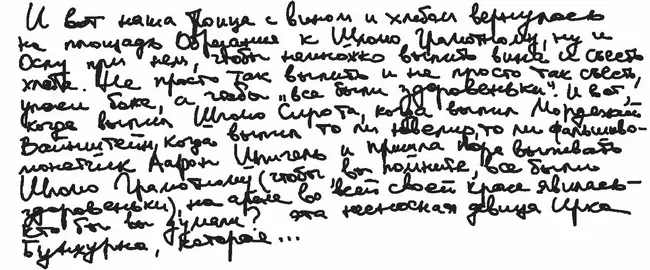 И вот наша троица с вином и хлебом вернулась
на площадь Обрезания к Шломо Грамотному, ну и
Ослу при нем, чтобы немножко выпить вина и съесть
хлеба. Не просто так выпить и не просто так съесть,
упаси боже, а чтобы „все были здоровеньки“. И вот,
когда выпил Шломо Сирота, когда выпил Мордехай
Вайнштейн, когда выпил то ли ювелир, то ли фальшиво-
монетчик Аарон Шпигель и пришла пора выпивать
Шломо Грамотному (чтобы вы помните, все были
здоровеньки), на арене во всей своей красе явилась –
кто бы вы думали? эта несносная девица Ирка
Бунжурна, которая...